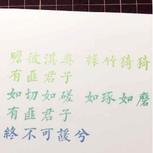 瞻彼淇奧 綠竹猗猗
有匪君子
如切如磋 如琢如磨
有匪君子
終不可諼兮